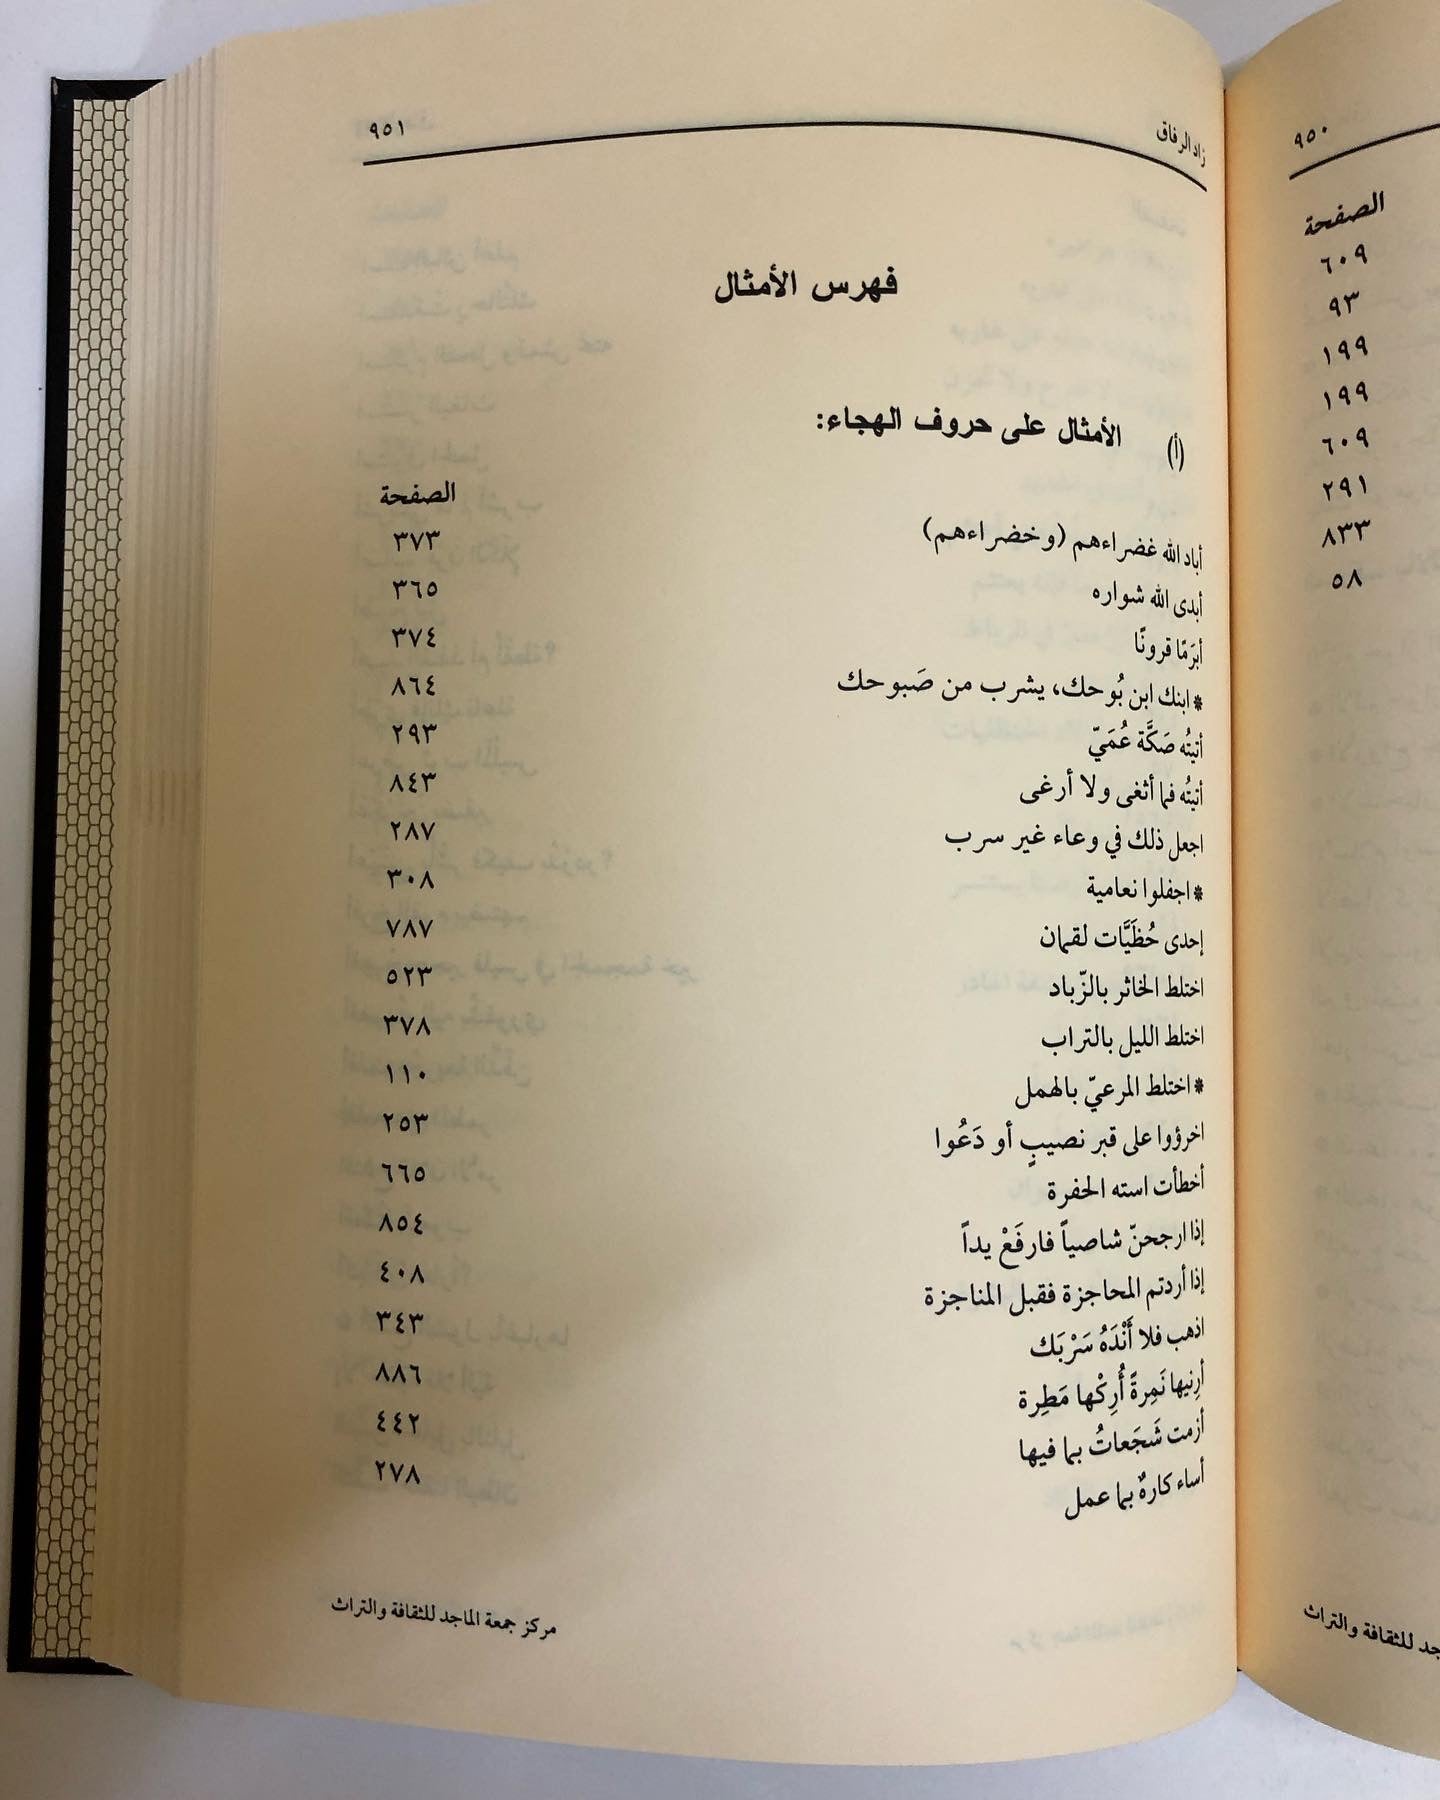 ٩٥٠
الصفحة
٦٠٩
٩٣
١٩٩
١٩٩
٦٠٩
٢٩١
٨٣٣
٥٨
للثقافة والتراث
زاد الرفاق ٩٥١
فهرس الأمثال
(أ) الأمثال على حروف الهجاء:
الصفحة
أباد الله غضراءهم (وخضراءهم) ٣٧٣
أبدى الله شواره ٣٦٥
أبرَمًا قرونًا ٣٧٤
* ابنك ابن بُوحك، يشرب من صَبوحك ٨٦٤
أتيتُه صَكَّة عُمَيّ ٢٩٣
أتيتُه فما أثغى ولا أرغى ٨٤٣
اجعل ذلك في وعاء غير سرب ٢٨٧
* اجفلوا نعامية ٣٠٨
إحدى حُظَيَّات لقمان ٧٨٧
اختلط الخاثر بالزّباد ٥٢٣
اختلط الليل بالتراب ٣٧٨
* اختلط المرعيّ بالهمل ١١٠
اخرؤوا على قبر نصيبٍ أو دَعُوا ٢٥٣
أخطأت استه الحفرة ٦٦٥
إذا ارجحنّ شاصياً فارفَعْ يداً ٨٥٤
إذا أردتم المحاجزة فقبل المناجزة ٤٠٨
اذهب فلا أَنْدَهُ سَرْبَك ٣٤٣
أرِنيها نَمِرةً أُرِكْها مَطِرة ٨٨٦
أزمت شَجَعاتُ بما فيها ٤٤٢
أساء كارهٌ بما عمل ٢٧٨
مركز جمعة الماجد للثقافة والتراث